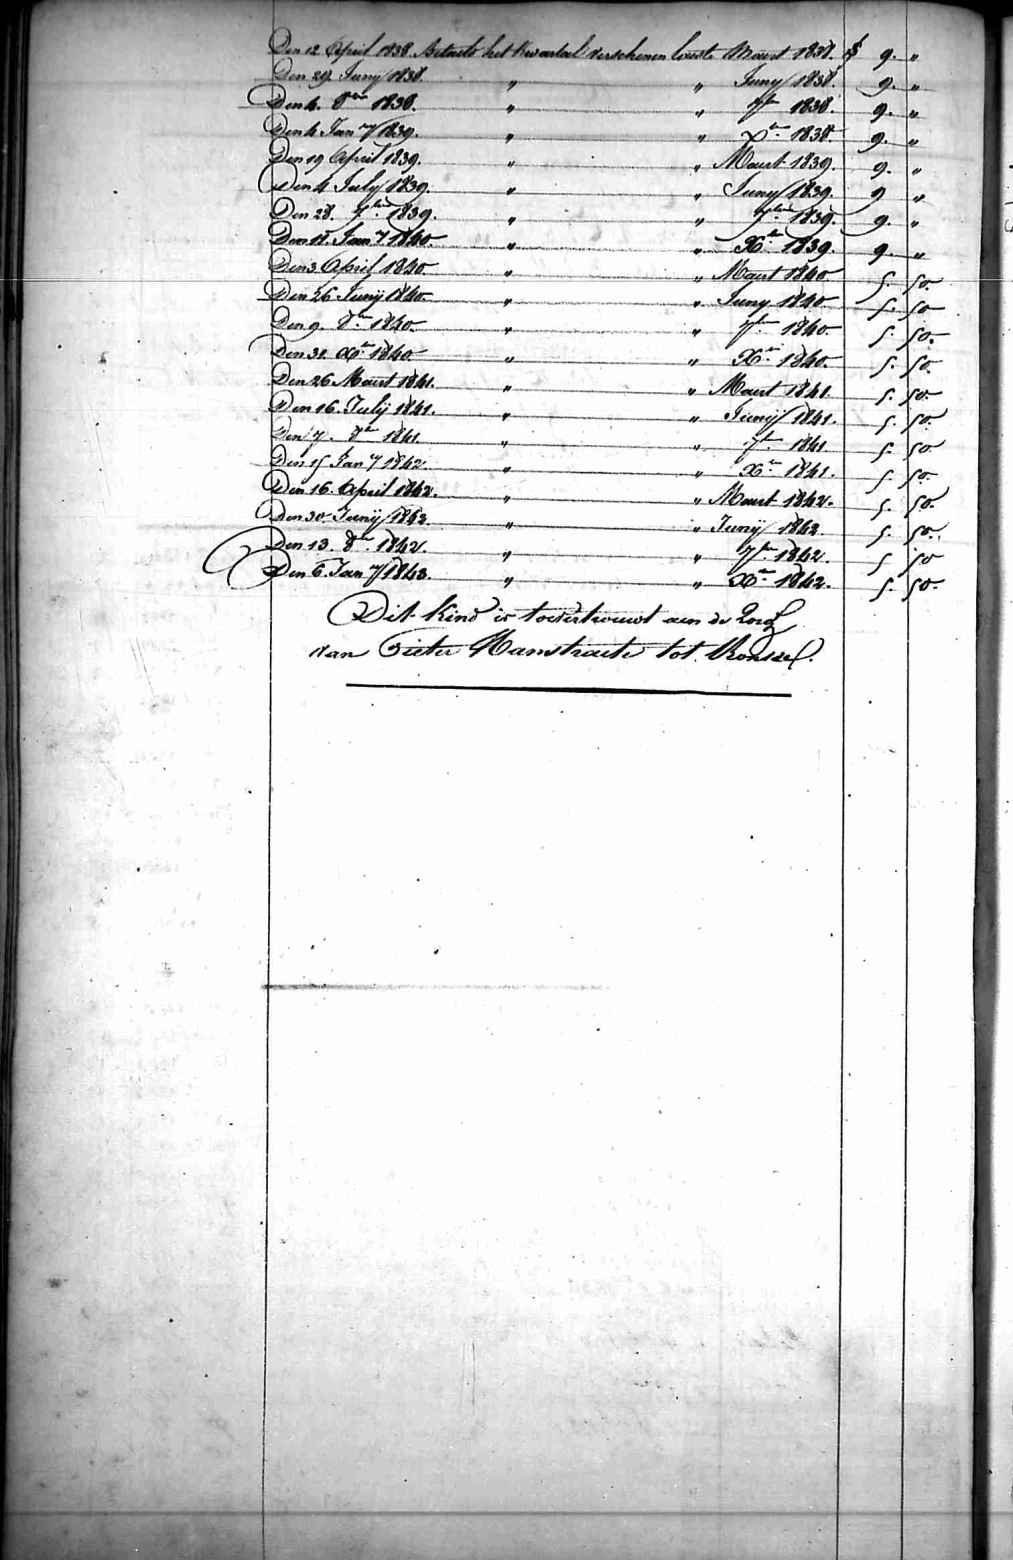 Den 12 April 1838. Betaelt het kwartael verschenen laeste Maert 1838. f 9. "
Den 29 Juny 1838. " " Juny 1838. 9. "
Den 4. 8ber 1838. " " 7ber 1838. 9. "
Den 4 Jany 1839. " " Xber 1838. 9. "
Den 19 April 1839. " " Maert 1839. 9. "
Den 4 July 1839. " " Juny 1839. 9 "
Den 28. 7ber 1839. " " 7ber 1839. 9. "
Den 18. Jany 1840. " " Xber 1839. 9. "
Den 3 April 1840. " " Maert 1840. 5. 50.
Den 26 Junij 1840. " " Juny 1840. 5. 50
Den 9. 8ber 1840. " " 7ber 1840. 5. 50.
Den 31. Xber 1840. " " Xber 1840. 5. 50.
Den 26 Maert 1841. " " Maert 1841. 5. 50.
Den 16. Julij 1841. " " Junij 1841. 5. 50.
Den 7. 8ber 1841. " " 7ber 1841. 5. 50.
Den 15 Jany 1842. " " Xber 1841. 5. 50.
Den 16. April 1842. " " Maert 1842. 5. 50.
Den 30 Junij 1842. " " Junij 1842. 5. 50.
Den 13. 8ber 1842. " " 7ber 1842. 5 50
Den 6. Jany 1843. " " Xber 1842. 5. 50.
Dit kind is toevertrouwt aen de
van Pieter tot